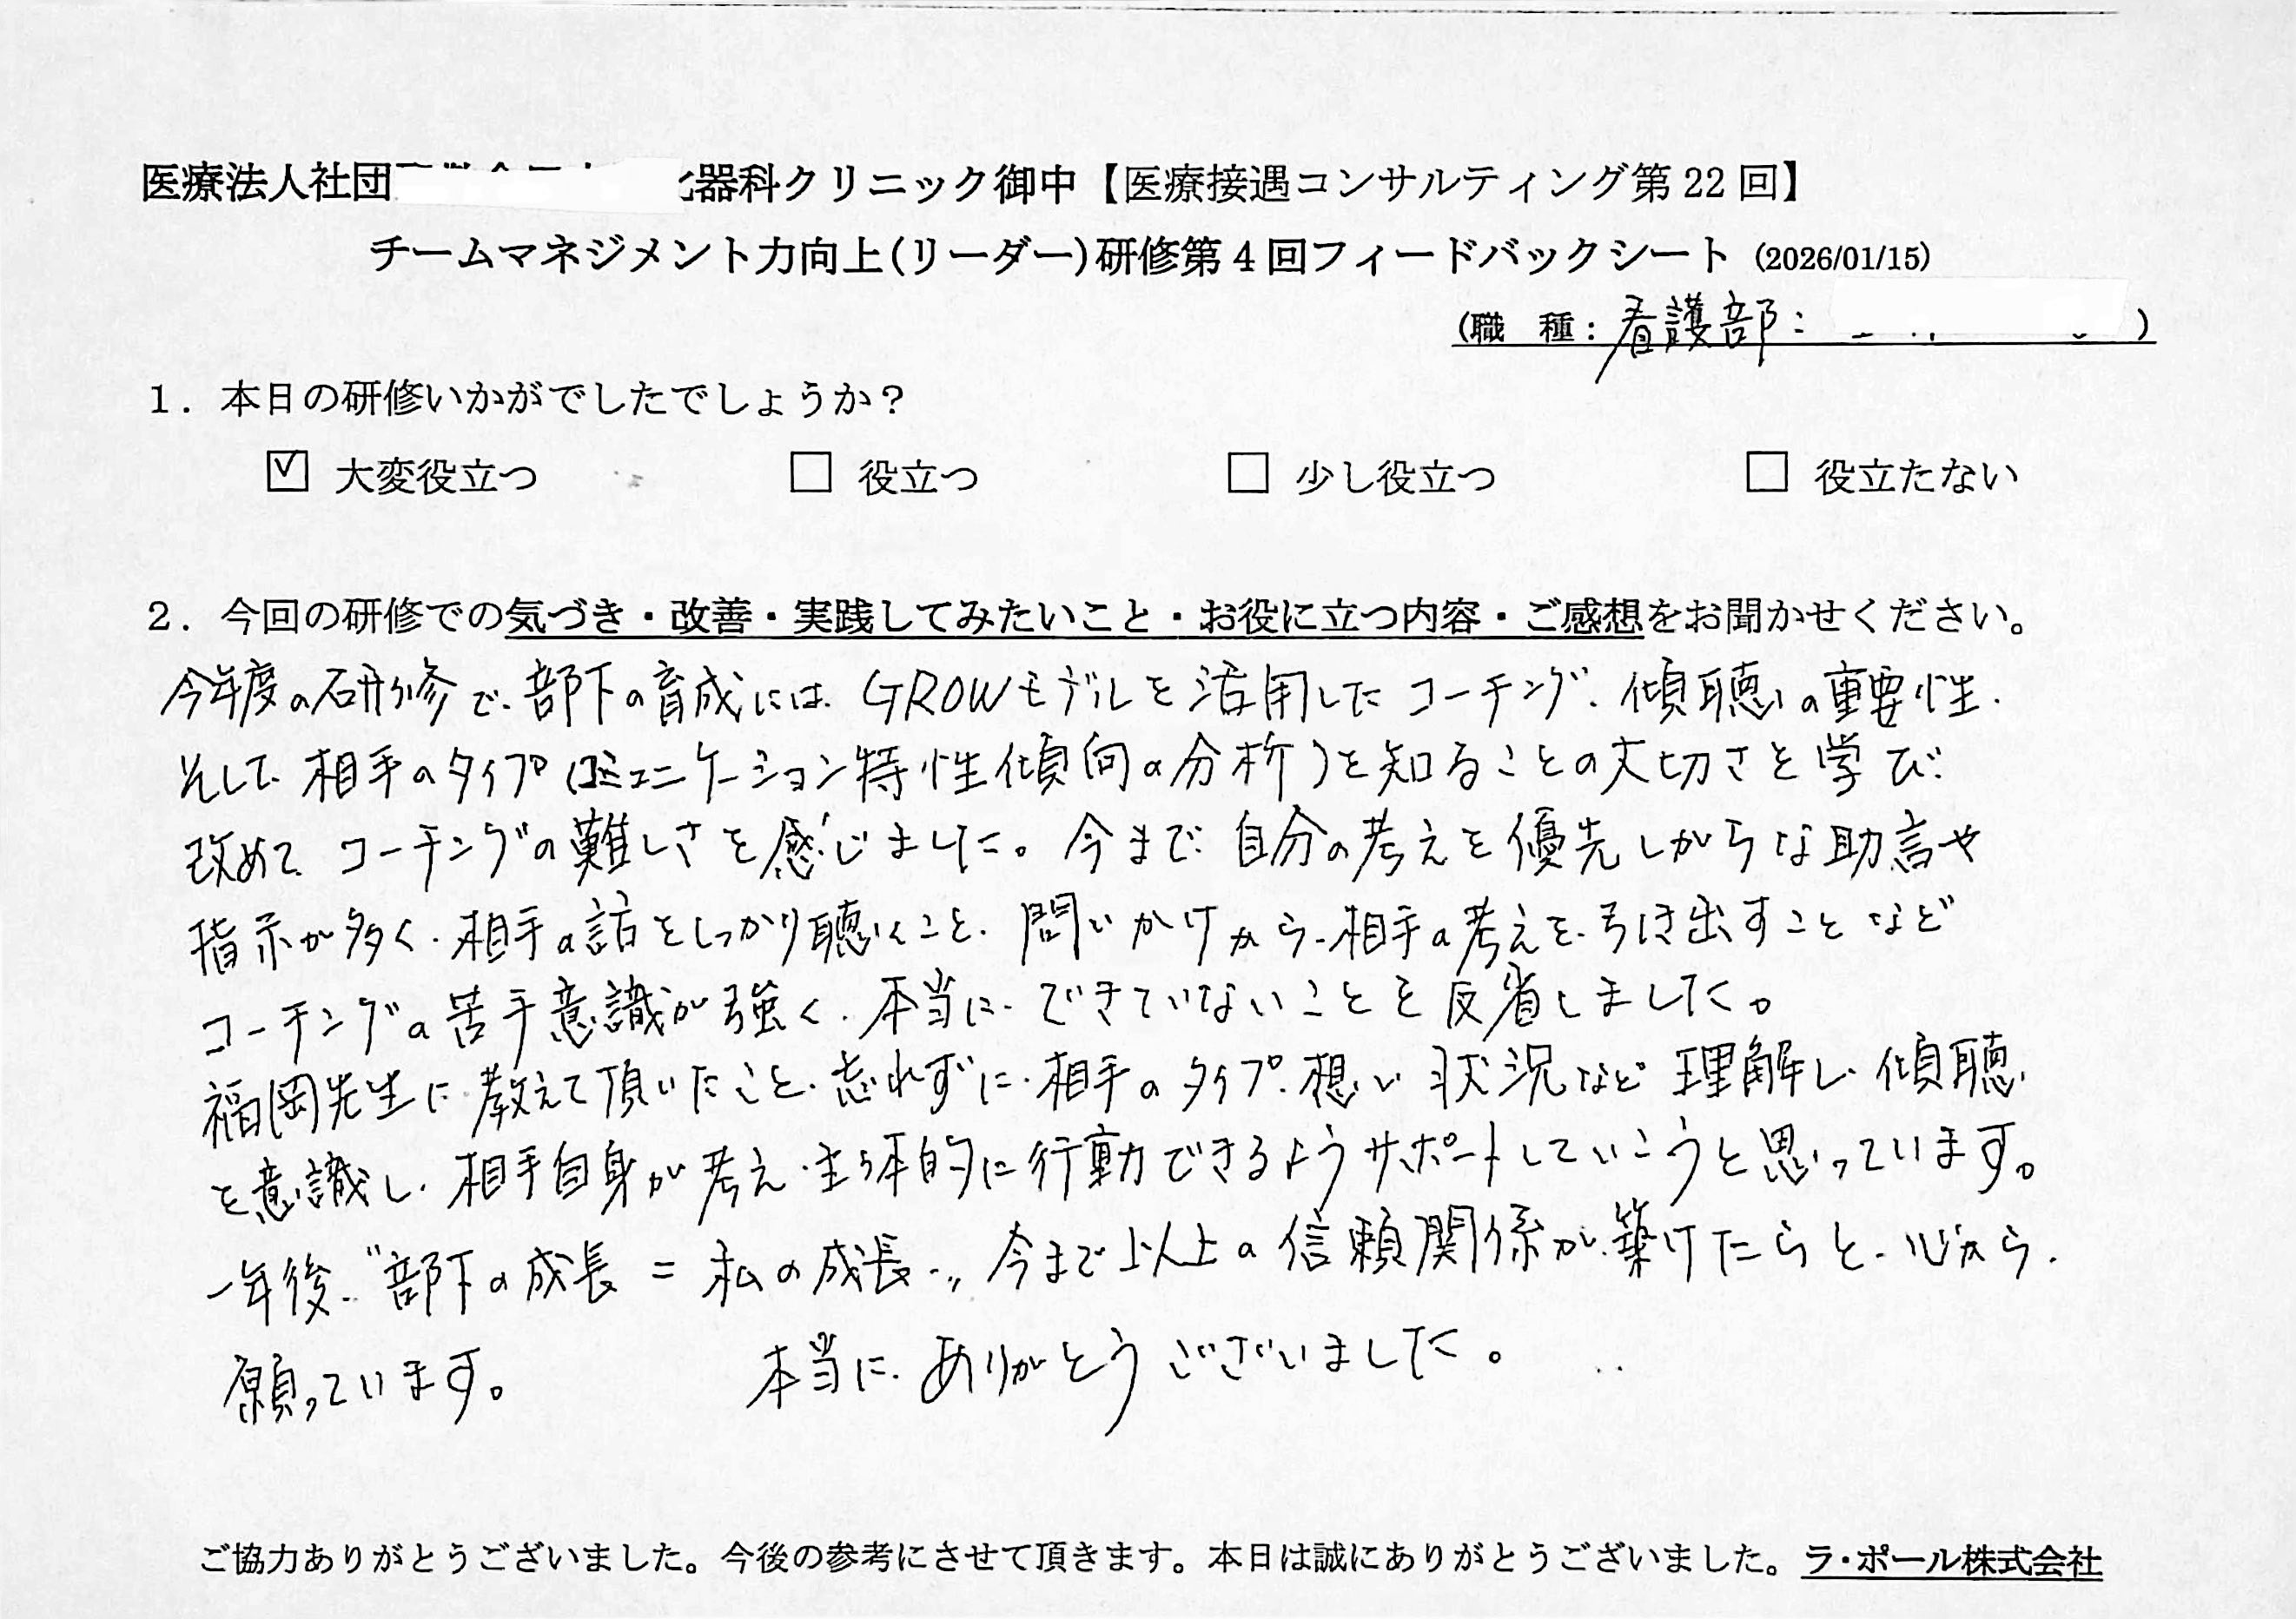 医療法人社団 器科クリニック御中【医療接遇コンサルティング第22回】
チームマネジメント力向上(リーダー)研修第4回フィードバックシート (2026/01/15)
(職 種：看護部： )
1．本日の研修いかがでしたでしょうか？
☑ 大変役立つ □ 役立つ □ 少し役立つ □ 役立たない
2．今回の研修での気づき・改善・実践してみたいこと・お役に立つ内容・ご感想をお聞かせください。
今年度の研修で、部下の育成には、GROWモデルを活用したコーチング、傾聴の重要性、
そして、相手のタイプ(コミュニケーション特性傾向の分析)を知ることの大切さを学び、
改めて、コーチングの難しさを感じました。今まで、自分の考えを優先しがちな助言や
指示が多く、相手の話をしっかり聴くこと、問いかけから、相手の考えを、引き出すことなど
コーチングの苦手意識が強く、本当に、できていないことを反省しました。
福岡先生に、教えて頂いたこと、忘れずに、相手のタイプ、想い、状況など理解し、傾聴
を意識し、相手自身が考え、主体的に行動できるようサポートしていこうと思っています。
一年後、〝部下の成長＝私の成長〟、今まで以上の信頼関係が、築けたらと、心から、
願っています。 本当に、ありがとうございました。
ご協力ありがとうございました。今後の参考にさせて頂きます。本日は誠にありがとうございました。ラ・ポール株式会社